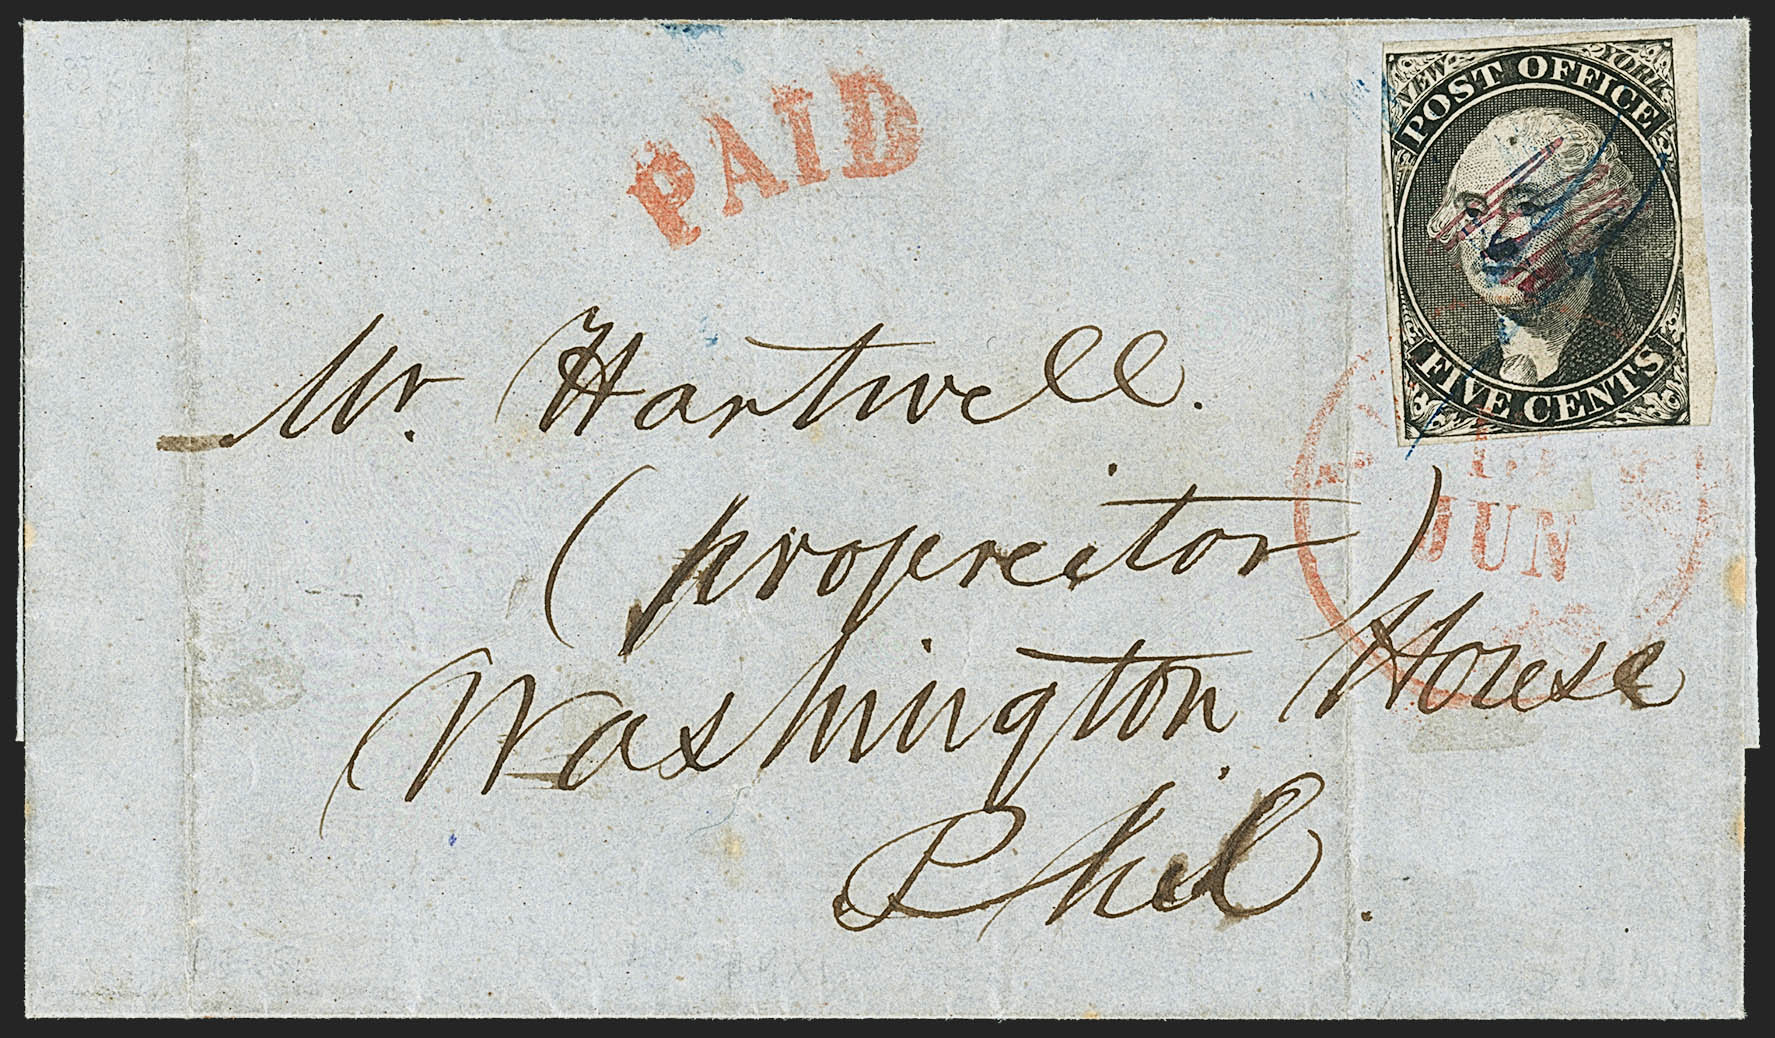 PAID
NEW YORK
POST OFFICE
FIVE CENTS
JUN
Mr. Hartwell.
(propreitor)
Washington House
Phil.